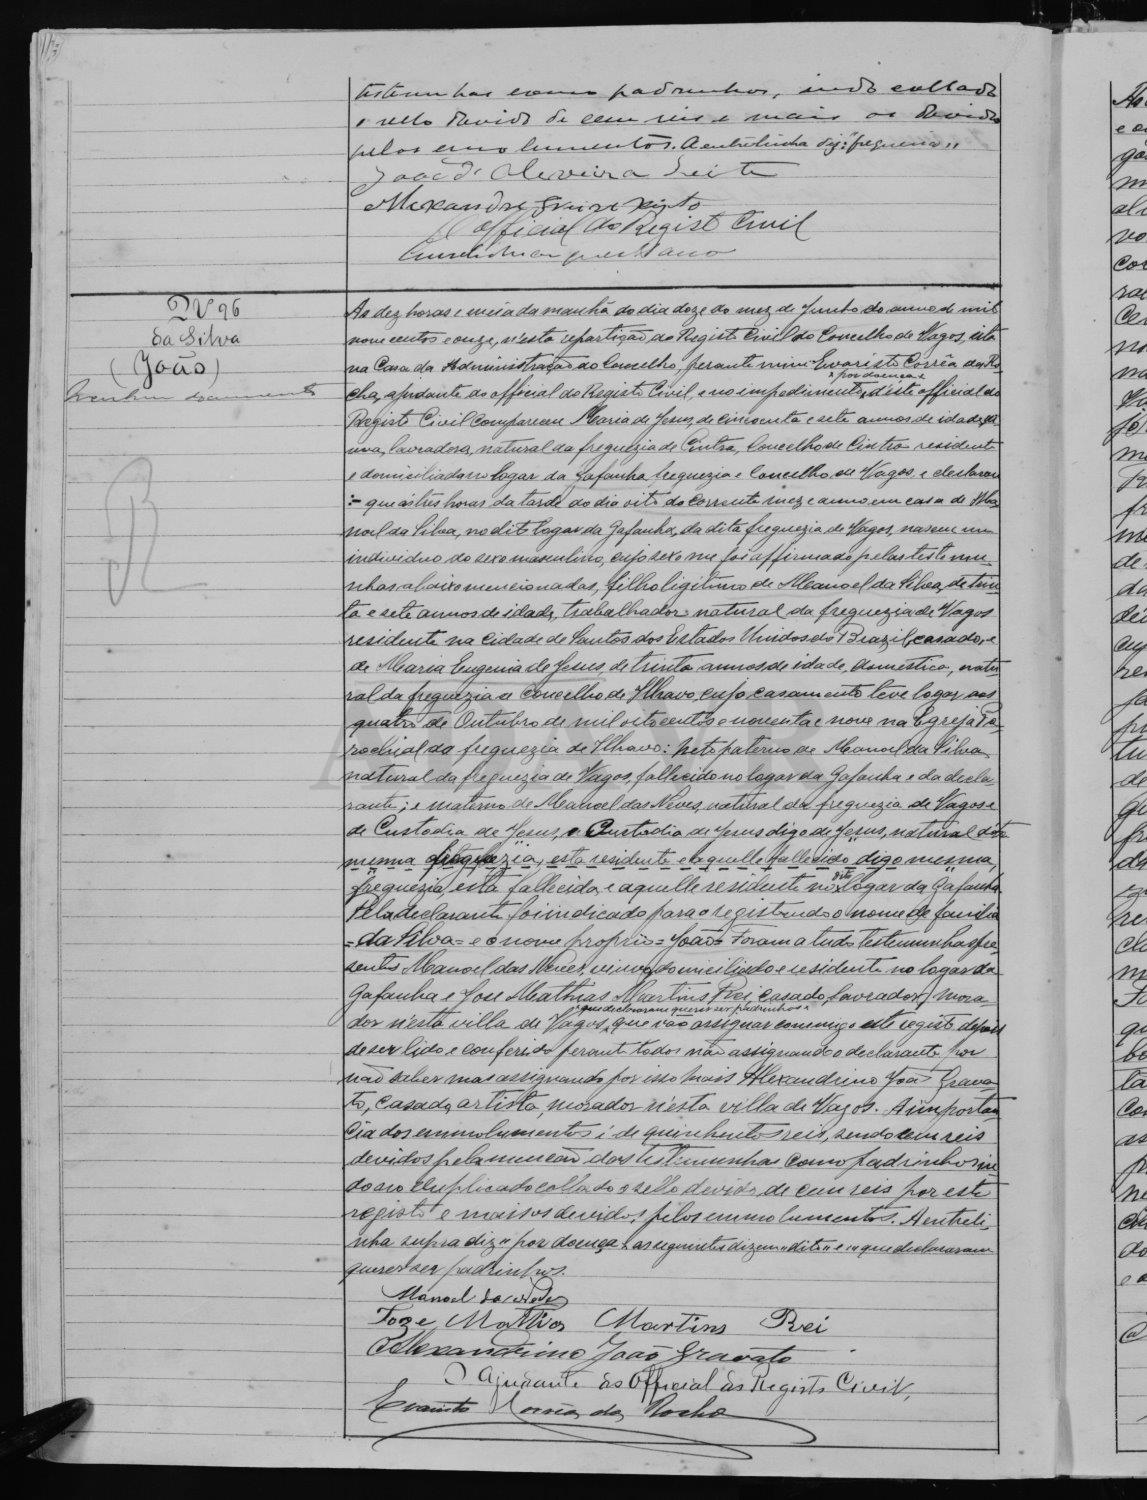 testemunhas como padrinhos, indo collado
o sello devido de cem reis e mais os devidos
pelos emolumentos. A entrelinha diz: "freguezia"
João d'Oliveira Leite
Alexandre
O official do Registo Civil
Nº 96
da Silva
(João)
Nenhum documento
Ás dez horas e meia da manhã do dia doze do mez de Junho do anno de mil
novecentos e onze, n'esta repartição do Registo Civil do Concelho de Vagos, sita
na Casa da Administração do Concelho, perante mim Evaristo Corrêa da Ro-
cha, ajudante do official do Registo Civil, e no impedimento, "por doença", d'este official do
Registo Civil compareceu Maria de Jesus, de cincoenta e sete annos de idade, vi-
uva, lavradora, natural da freguezia de Cintra, Concelho de Cintra residente
e domiciliada no logar da Gafanha, freguezia e Concelho de Vagos, e declarou
:- que ás tres horas da tarde do dia oito do corrente mez e anno em casa de Ma-
noel da Silva, no dito logar da Gafanha, da dita freguezia de Vagos, nasceu um
individuo do sexo masculino, cujo sexo me foi affirmado pelas testemu-
nhas abaixo mencionadas, filho legitimo de Manoel da Silva, de trin-
ta e sete annos de idade, trabalhador, natural da freguezia de Vagos
residente na cidade de Santos dos Estados Unidos do Brazil, casado, e
de Maria Eugenia de Jesus, de trinta annos de idade, domestica, natu-
ral da freguezia e Concelho de Ilhavo, cujo casamento teve logar aos
quatro de Outubro de mil oitocentos e noventa e nove na Egreja Pa-
rochial da freguezia de Ilhavo: neto paterno de Manoel da Silva
natural da freguezia de Vagos, fallecido no logar da Gafanha e da decla-
rante; e materno de Manoel das Neves, natural da freguezia de Vagos e
de Custodia de Jesus, e Custodia de Jesus digo de Jesus, natural da
mesma freguezia, esta residente e aquelle fallecido digo mesma
freguezia, esta fallecida, e aquelle residente no dito logar da Gafanha.
Pela declarante foi indicado para o registrando o nome de familia
= da Silva = e o nome proprio = João = Foram a tudo testemunhas pre-
sentes Manoel das Neves, viuvo, domiciliado e residente no logar da
Gafanha e José Mathias Martins Rei, casado, lavrador, mora-
dor n'esta villa de Vagos, "que declararam querer ser padrinhos", que vão assignar commigo este registo depois
de ser lido e conferido perante todos não assignando o declarante por
não saber mas assignando por isso mais Alexandrino João Grava-
to, casado, artista, morador n'esta villa de Vagos. A importan-
cia dos emolumentos é de quinhentos reis, sendo cem reis
devidos pela menção das testemunhas como padrinhos in-
do no duplicado collado o sello devido de cem reis por este
registo e mais os devidos pelos emmolumentos. A entreli-
nha supra diz "por doença", as seguintes dizem "dito" e "que declararam
querer ser padrinhos.
Manoel das Neves
Joze Mathias Martins Rei
Alexandrino João Gravato
O Ajudante do Official do Registo Civil,
Evaristo Corrêa da Rocha